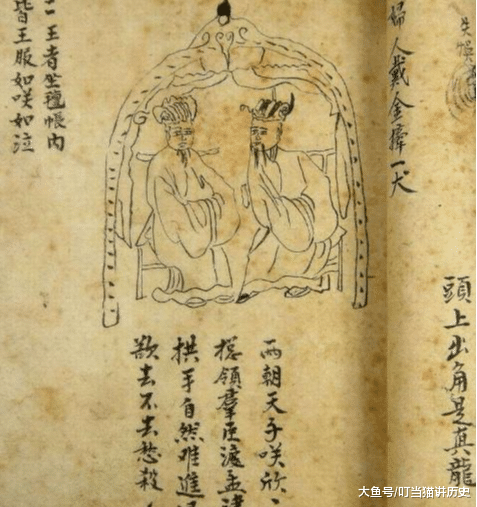 失
頭上出角是真龍
婦人戴金 一犬
二王者坐氊帳內
皆王服如咲如泣
兩朝天子咲欣、
揔領羣臣渡孟津
拱手自然难進
欲去不去愁殺
大鱼号/叮当猫讲历史